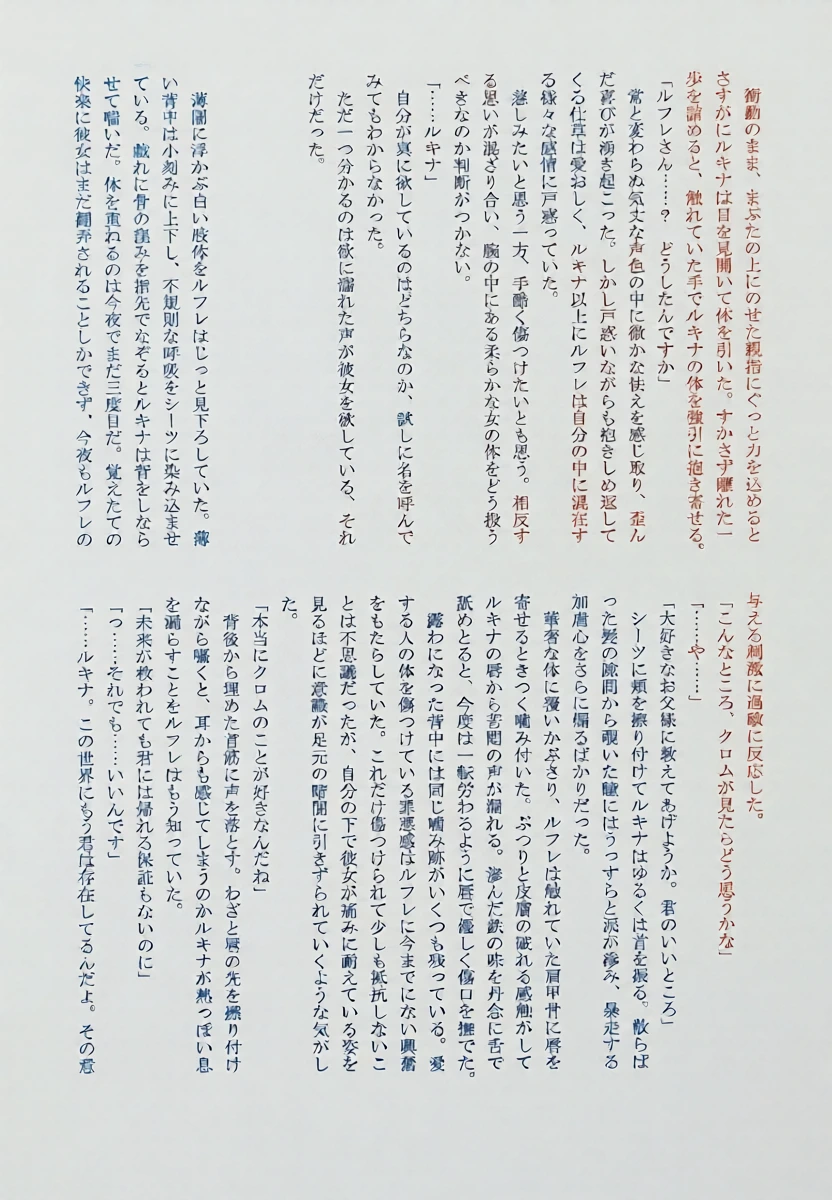 衝動のまま、まぶたの上にのせた親指にぐっと力を込めると
さすがにルキナは目を見開いて体を引いた。すかさず離れた一
歩を詰めると、触れていた手でルキナの体を強引に抱き寄せる。
「ルフレさん……？　どうしたんですか」
　常と変わらぬ気丈な声色の中に微かな怯えを感じ取り、歪ん
だ喜びが湧き起こった。しかし戸惑いながらも抱きしめ返して
くる仕草は愛おしく、ルキナ以上にルフレは自分の中に混在す
る様々な感情に戸惑っていた。
　慈しみたいと思う一方、手酷く傷つけたいとも思う。相反す
る思いが混ざり合い、腕の中にある柔らかな女の体をどう扱う
べきなのか判断がつかない。
「……ルキナ」
　自分が真に欲しているのはどちらなのか、試しに名を呼んで
みてもわからなかった。
　ただ一つ分かるのは欲に濡れた声が彼女を欲している、それ
だけだった。
　薄闇に浮かぶ白い肢体をルフレはじっと見下ろしていた。薄
い背中は小刻みに上下し、不規則な呼吸をシーツに染み込ませ
ている。戯れに骨の窪みを指先でなぞるとルキナは背をしなら
せて喘いだ。体を重ねるのは今夜でまだ三度目だ。覚えたての
快楽に彼女はまだ翻弄されることしかできず、今夜もルフレの
与える刺激に過敏に反応した。
「こんなところ、クロムが見たらどう思うかな」
「……や……」
「大好きなお父様に教えてあげようか。君のいいところ」
　シーツに頬を擦り付けてルキナはゆるくは首を振る。散らば
った髪の隙間から覗いた瞳にはうっすらと涙が滲み、暴走する
加虐心をさらに煽るばかりだった。
　華奢な体に覆いかぶさり、ルフレは触れていた肩甲骨に唇を
寄せるときつく噛み付いた。ぷつりと皮膚の破れる感触がして
ルキナの唇から苦悶の声が漏れる。滲んだ鉄の味を丹念に舌で
舐めとると、今度は一転労わるように唇で優しく傷口を撫でた。
　露わになった背中には同じ噛み跡がいくつも残っている。愛
する人の体を傷つけている罪悪感はルフレに今までにない興奮
をもたらしていた。これだけ傷つけられて少しも抵抗しないこ
とは不思議だったが、自分の下で彼女が痛みに耐えている姿を
見るほどに意識が足元の暗闇に引きずられていくような気がし
た。
「本当にクロムのことが好きなんだね」
　背後から埋めた首筋に声を落とす。わざと唇の先を擦り付け
ながら囁くと、耳からも感じてしまうのかルキナが熱っぽい息
を漏らすことをルフレはもう知っていた。
「未来が救われても君には帰れる保証もないのに」
「っ……それでも……いいんです」
「……ルキナ。この世界にもう君は存在してるんだよ。その意